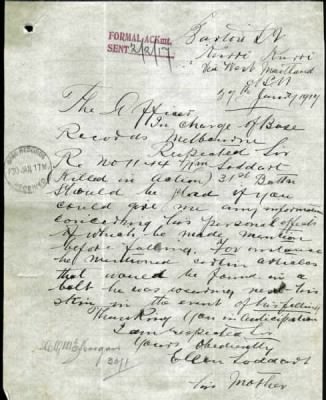 FORMAL ACKmt.
SENT 2/2/17
Barton St
Kurri Kurri
Via West Maitland
N S W
27th Janry 1917
The Officer
In charge of Base
Records Melbourne
Respected Sir
Re No 1144
Killed in Action 31st Battn
I should be glad if you
could give me any information
concerning his personal effects
of which he made mention
before falling. For instance
he mentioned certain articles
that would be found in a
belt he was wearing next his
skin in the event of his falling
Thanking You in Anticipation
I am respected Sir
Yours Obediently
Ellen Loddart
his Mother
30/1